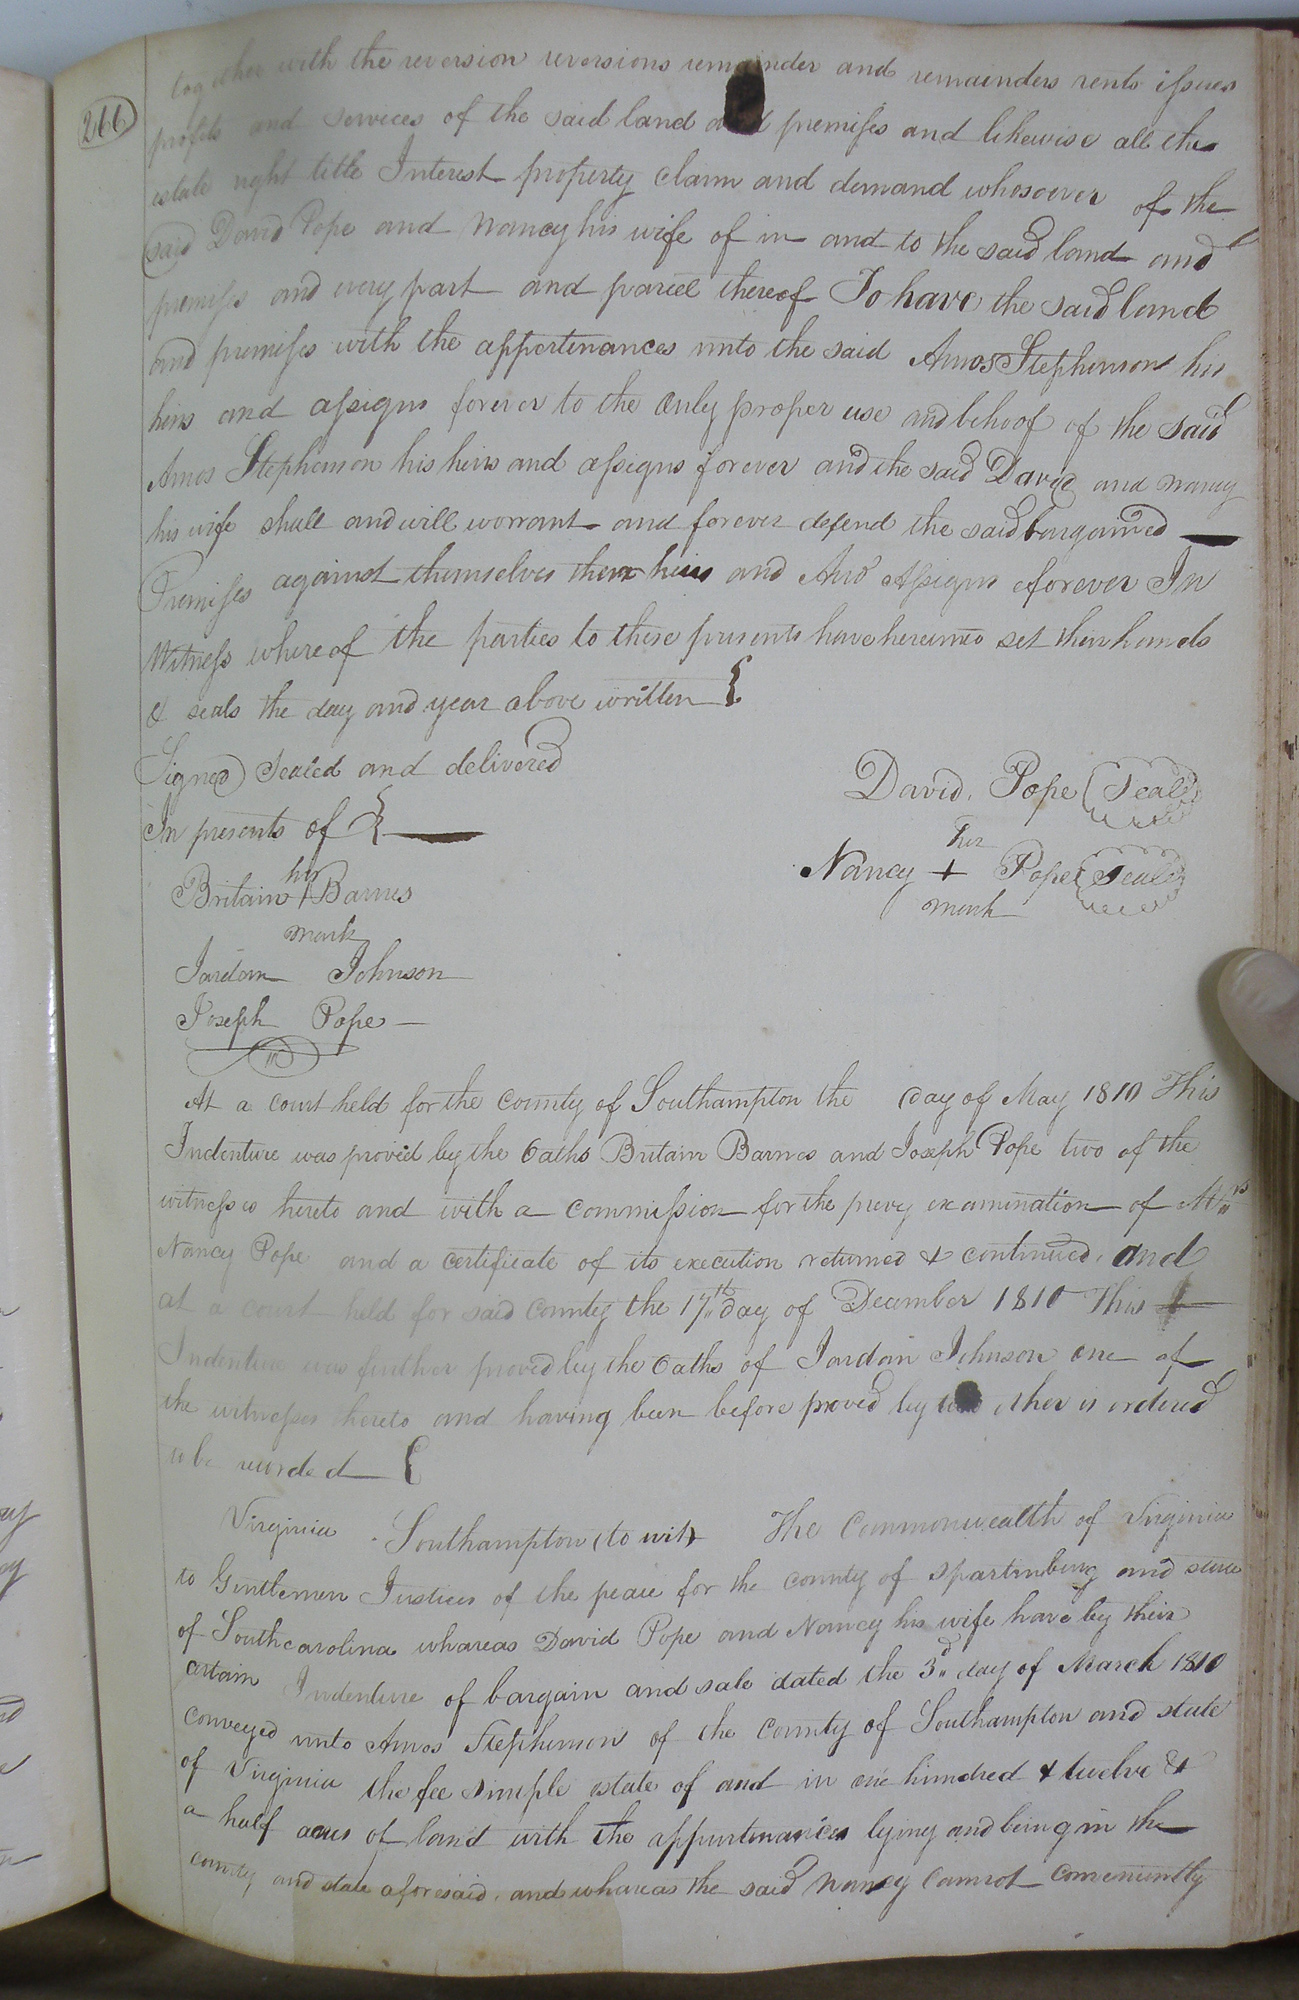 266
together with the reversion reversions remainder and remainders rents issues
profits and services of the said land and premises and likewise all the
estate right title Interest property claim and demand whosoever of the
said David Pope and Nancy his wife of in and to the said land and
premises and every part and parcel thereof To have the said land
and premises with the appertenances unto the said Amos Stephenson his
heirs and assigns forever to the only proper use and behoof of the said
Amos Stephenson his heirs and assigns forever and the said David and Nancy
his wife shall and will worrant and forever defend the said bargained
Premises against themselves their heirs and And Assigns forever In
Witness whereof the parties to these presents have hereunto set their hands
& seals the day and year above written
Signed Sealed and delivered
In presents of
David Pope Seal
her
Nancy + Pope Seal
mark
his
Britain + Barnes
mark
Jordan Johnson
Joseph Pope
At a court held for the County of Southampton the day of May 1810 This
Indenture was proved by the Oaths Britain Barnes and Joseph Pope two of the
witnesses hereto and with a commission for the privy examination of Mrs
Nancy Pope and a certificate of its execution returned & continued. and
at a court held for said County the 17th day of December 1810 This
Indenture was further proved by the Oaths of Jordan Johnson one of
the witnesses hereto and having been before proved by two other is ordered
to be recorded
Virginia Southampton (to wit) The Commonwealth of Virginia
to Gentlemen Justices of the peace for the county of Spartinburg and state
of Southcarolina whareas David Pope and Nancy his wife have by their
certain Indenture of bargain and sale dated the 3d day of March 1810
conveyed unto Amos Stephenson of the County of Southampton and state
of Virginia the fee simple estate of and in one hundred & twelve &
a half acres of land with the appurtenances lying and being in the
county and state aforesaid. and whareas the said Nancy Cannot Conveniently